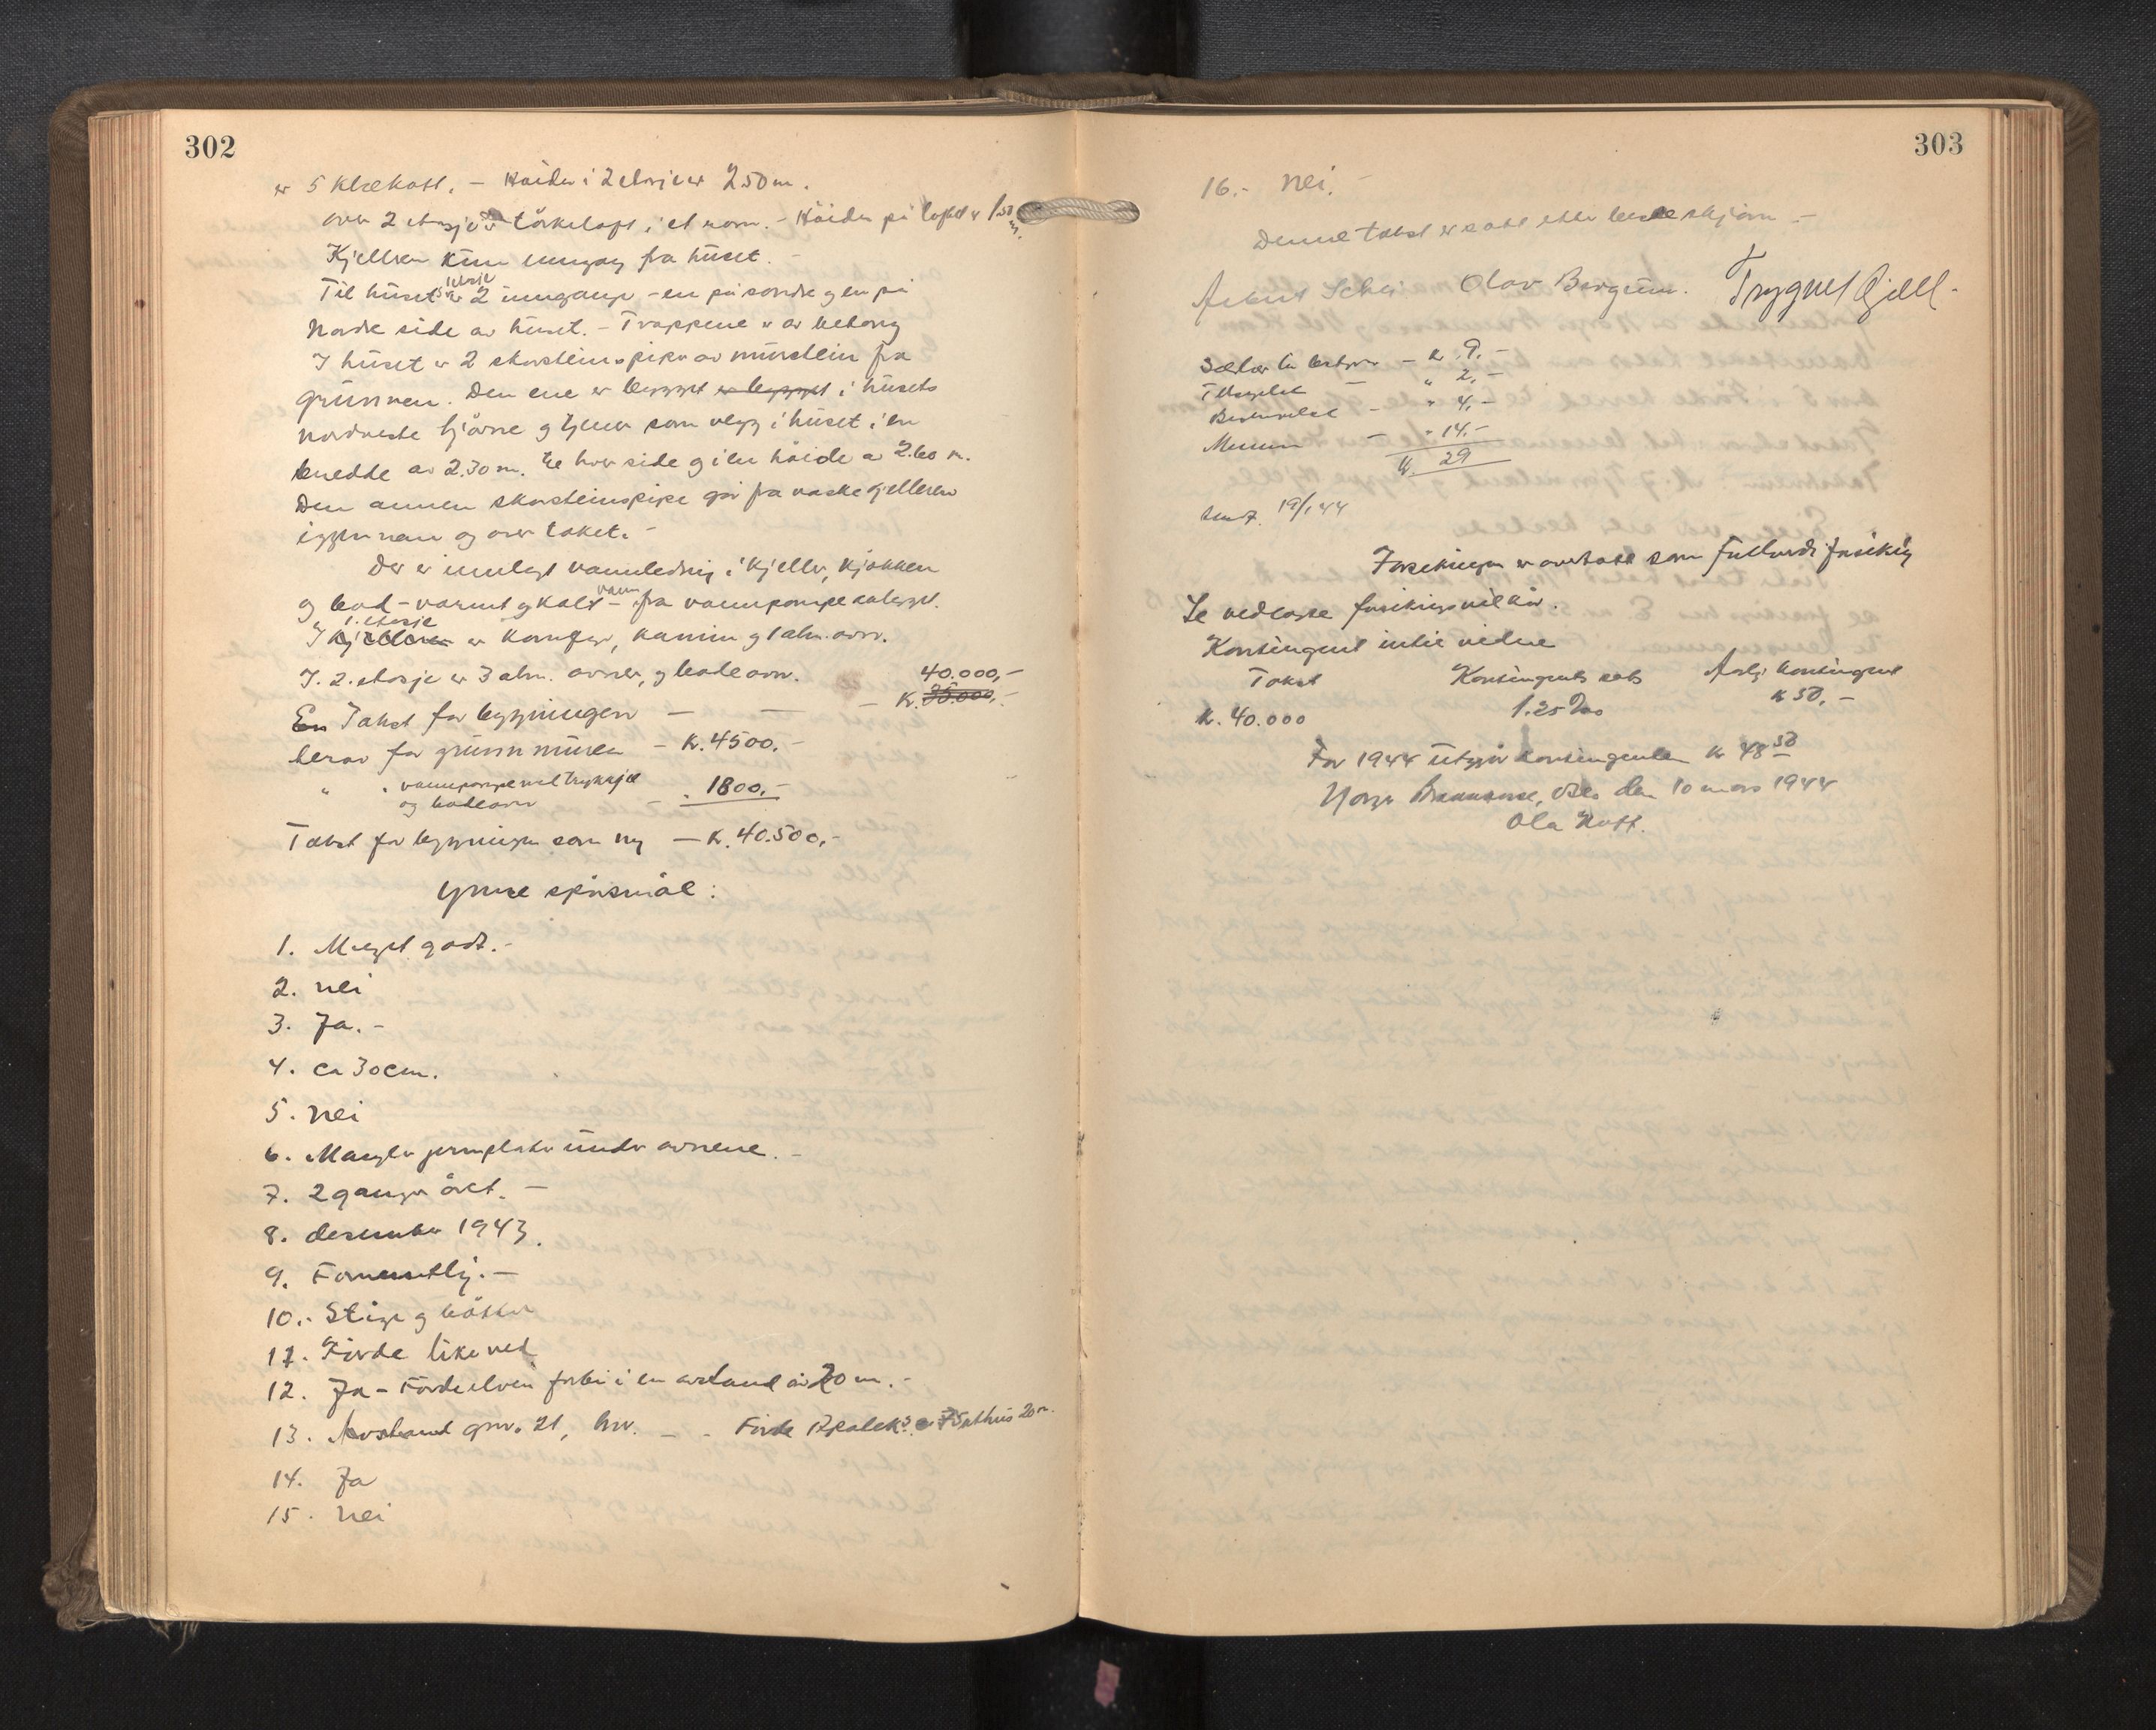 302
er 5 klækott. - Høiden i 2 etasje er 2.50 m.
over 2 etasje er tørkeloft i et rom. - Høiden på loftet er 1.50 m.
Kjelleren kun inngang fra huset. -
Til husets 1 etasje er 2 innganger - en på søndre og en på
nordre side av huset. - Trappene er av betong
I huset er 2 skorsteinspiper av murstein fra
grunnen. Den ene er bygget er bygget i husets
nordveste hjørne og tjener som vegg i huset i en
bredde av 2.30 m. til hver side og i en høide av 2.60 m.
Den annen skorsteinspipe går fra vaskekjelleren
igjennem og over taket. -
Der er innlagt vannledning i kjeller, kjøkken
og bad - varmt og kalt vann - fra vannpumpeanlegget.
I kjelleren 1. etasje er komfyr, kamin og 1 alm. ovn.
I. 2. etasje er 3 alm. ovner, og badeovn.
40.000,-
En Takst for bygningen — — — kr. 35.000,-
herav for grunnmuren - Kr. 4500.-
" " vannpumpe med trykkjel
og badeovn — " 1800.-
Takst for bygningen som ny — Kr. 40.500,-
Ymse spørsmål:
1. Meget godt. -
2. nei
3. Ja. -
4. ca 30 cm.
5. nei
6. Mangler jernplater under ovnene. -
7. 2 ganger året. -
8. desember 1943.
9. Forsvarlig. -
10. - Stige og bøtter
11. Førde like ved
12. Ja - Førdeelven forbi i en avstand av 20 m. -
13. Avstand gnr. 21, bnr. - - Førde Apotek's uthus 20 m.
14. Ja
15. nei
303
16. - nei. -
Denne takst er satt etter beste skjønn -
Schei Olav Bergum. Trygve Gjell.
— kr 9. -
— " 2. -
Beskrivelse — " 4. -
— " 14. -
kr. 29
Sendt 19/1 44
Forsikringen er overtatt som fullverdiforsikring
Se vedlagte forsikringsvilkår.
Kontingent inntil videre
Takst Kontingents sats Årlig kontingent
kr. 40.000 1.25 ‰ kr 50,-
For 1944 utgjør kontingenten kr 48 50
Norges Brannkasse, Oslo den 10 mars 1944
Ola Hoff.